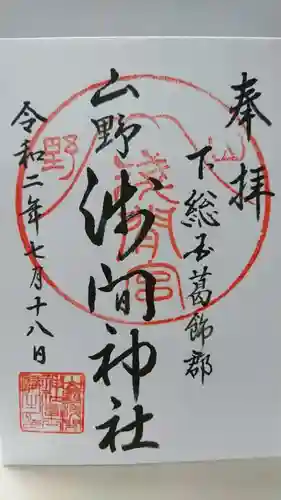 奉拝
下総国葛飾郡
山野浅間神社
令和二年七月十八日
山野
浅間宮